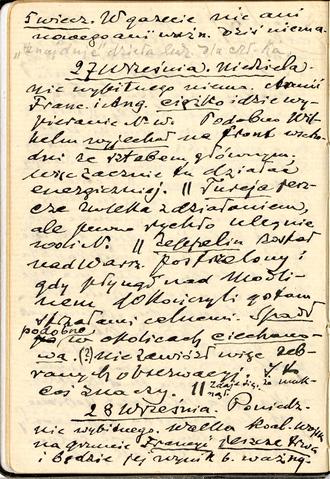 5 wiecz. W gazecie nic ani
nowego ani ważn. Dziś niema
27 Września. Niedziela.
nic wybitnego niema. Armii
Franc. i Ang. ciężko idzie wy-
pieranie N-w. Podobno Wil-
helm wyjechał na front wscho
dni ze sztabem głównym.
więc zacznie tu działać
energiczniej. || Turcja jesz-
cze zwleka z działaniem,
ale pewno rychło ulegnie
|| Zeppelin został
nad Warsz. postrzelony i
gdy płynął nad Modli-
nem dokończyli go tam
strzałami celnemi. Spadł
podobno w okolicach Ciechano-
wa. (?) nie zawiózł więc zeb-
ranych obserwacyj.
coś znaczy. ||
28 Września. Poniedz.
nic wybitnego. Walka koal. wojsk
na gruncie Francyi jeszcze trwa
i będzie jej wynik b. ważny.